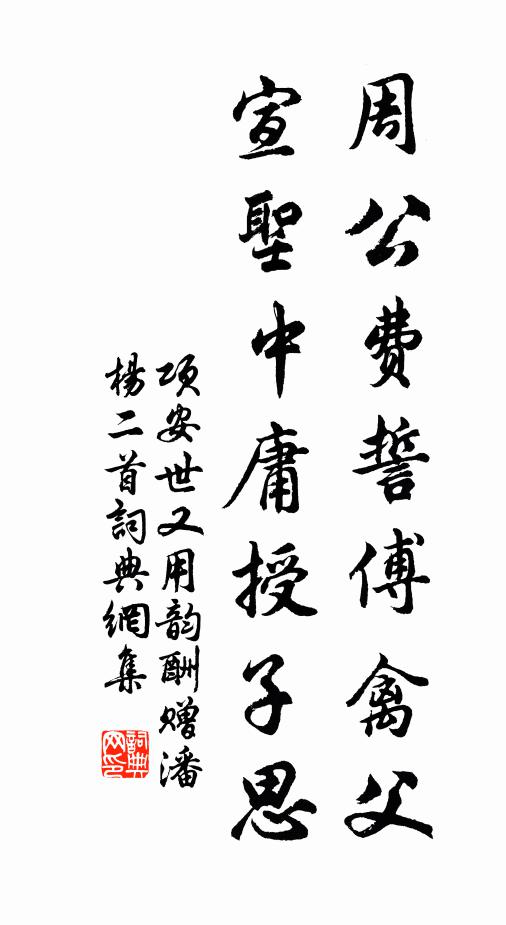 周公費誓傅禽父
宣聖中庸授子思
項安世又用韵酬贈潘
楊二首詞典網集
詞典
网印